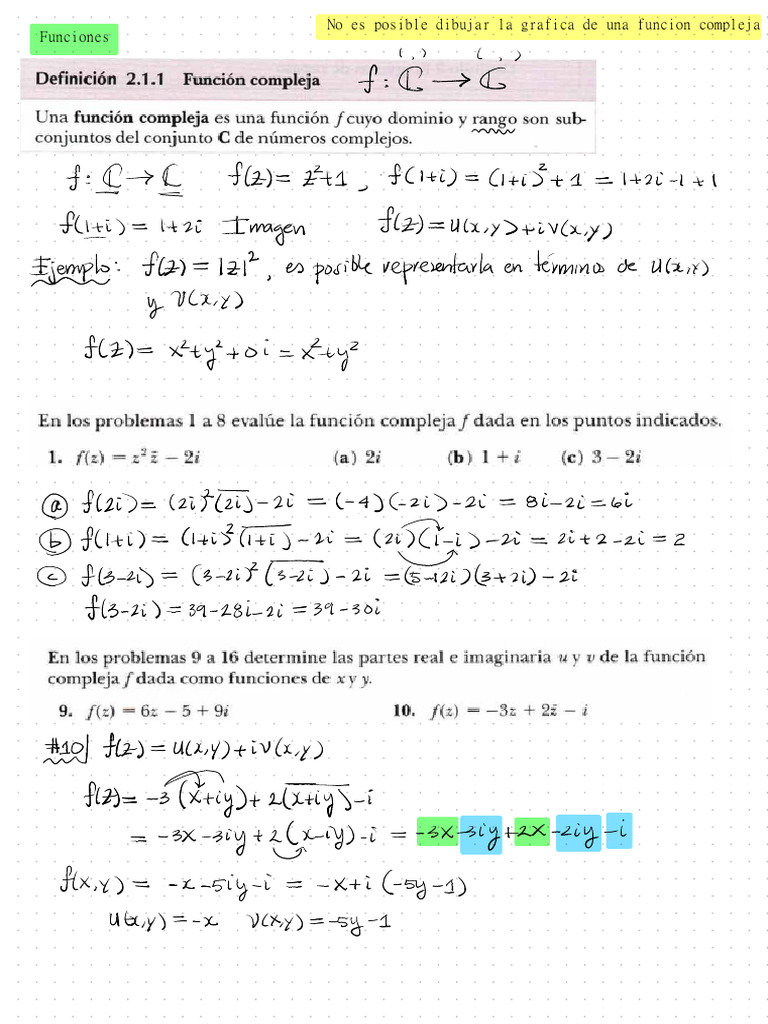 No es posible dibujar la grafica de una funcion compleja
Funciones
( , ) ( , )
Definición 2.1.1 Función compleja f: ℂ → ℂ
Una función compleja es una función f cuyo dominio y rango son sub-
conjuntos del conjunto C de números complejos.
f: ℂ → ℂ f(z) = z²+1, f(1+i) = (1+i)²+1 = 1+2i-1+1
f(1+i) = 1+2i Imagen f(z) = u(x,y)+iv(x,y)
Ejemplo: f(z) = |z|², es posible representarla en términos de u(x,y)
y v(x,y)
f(z) = x²+y²+0i = x²+y²
En los problemas 1 a 8 evalúe la función compleja f dada en los puntos indicados.
1. f(z) = z² z̄ − 2i (a) 2i (b) 1 + i (c) 3 − 2i
ⓐ f(2i) = (2i)²(\overline{2i})-2i = (-4)(-2i)-2i = 8i-2i = 6i
ⓑ f(1+i) = (1+i)²(\overline{1+i})-2i = (2i)(1-i)-2i = 2i+2-2i = 2
ⓒ f(3-2i) = (3-2i)²(\overline{3-2i})-2i = (5-12i)(3+2i)-2i
f(3-2i) = 39-28i-2i = 39-30i
En los problemas 9 a 16 determine las partes real e imaginaria u y v de la función
compleja f dada como funciones de x y y.
9. f(z) = 6z − 5 + 9i 10. f(z) = −3z + 2z̄ − i
#10| f(z) = u(x,y)+iv(x,y)
f(z) = -3(x+iy)+2(\overline{x+iy})-i
= -3x-3iy+2(x-iy)-i = -3x-3iy+2x-2iy-i
f(x,y) = -x-5iy-i = -x+i(-5y-1)
u(x,y) = -x v(x,y) = -5y-1